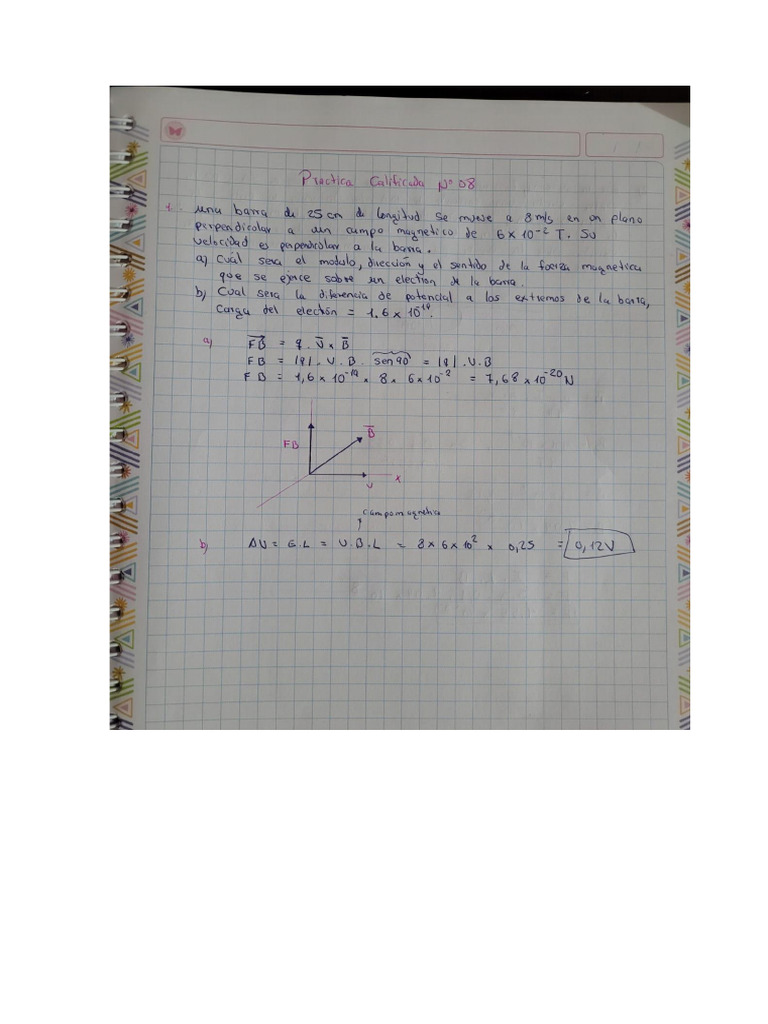 Practica Calificada N° 08
1. una barra de 25 cm de longitud se mueve a 8 m/s en un plano
perpendicular a un campo magnetico de 6 × 10⁻² T. Su
velocidad es perpendicular a la barra.
a) Cuál sera el modulo, dirección y el sentido de la fuerza magnetica
que se ejerce sobre un electron de la barra.
b) Cual sera la diferencia de potencial a los extremos de la barra,
Carga del electrón = 1.6 × 10⁻¹⁹.
a) FB = q . V × B
FB = |q| . V . B . sen 90° = |q| . V . B
FB = 1,6 × 10⁻¹⁹ × 8 × 6 × 10⁻² = 7,68 × 10⁻²⁰ N
B
FB
X
V
campo magnetico
b) ΔV = E.L = V.B.L = 8 × 6 × 10² × 0,25 = 0,12V